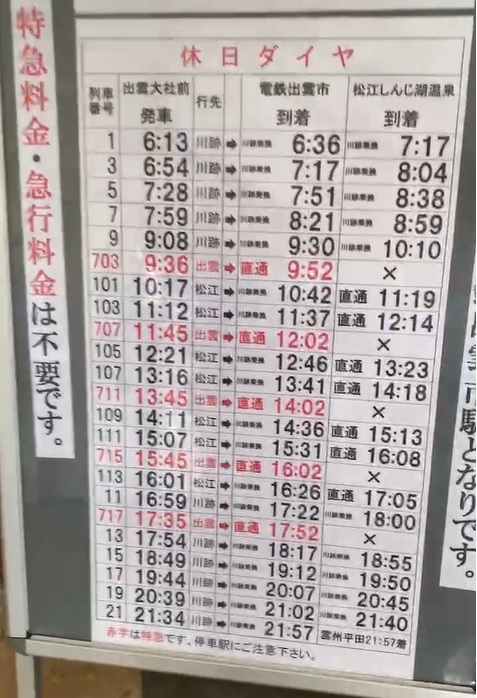 特急料金・急行料金は不要です。
休日ダイヤ
列車番号 出雲大社前 発車 行先 電鉄出雲市 到着 松江しんじ湖温泉 到着
1 6:13 川跡 ➡ 川跡乗換 6:36 川跡乗換 7:17
3 6:54 川跡 ➡ 川跡乗換 7:17 川跡乗換 8:04
5 7:28 川跡 ➡ 川跡乗換 7:51 川跡乗換 8:38
7 7:59 川跡 ➡ 川跡乗換 8:21 川跡乗換 8:59
9 9:08 川跡 ➡ 川跡乗換 9:30 川跡乗換 10:10
703 9:36 出雲 ➡ 直通 9:52 ×
101 10:17 松江 ➡ 川跡乗換 10:42 直通 11:19
103 11:12 松江 ➡ 川跡乗換 11:37 直通 12:14
707 11:45 出雲 ➡ 直通 12:02 ×
105 12:21 松江 ➡ 川跡乗換 12:46 直通 13:23
107 13:16 松江 ➡ 川跡乗換 13:41 直通 14:18
711 13:45 出雲 ➡ 直通 14:02 ×
109 14:11 松江 ➡ 川跡乗換 14:36 直通 15:13
111 15:07 松江 ➡ 川跡乗換 15:31 直通 16:08
715 15:45 出雲 ➡ 直通 16:02 ×
113 16:01 松江 ➡ 川跡乗換 16:26 直通 17:05
11 16:59 川跡 ➡ 川跡乗換 17:22 川跡乗換 18:00
717 17:35 出雲 ➡ 直通 17:52 ×
13 17:54 川跡 ➡ 川跡乗換 18:17 川跡乗換 18:55
15 18:49 川跡 ➡ 川跡乗換 19:12 川跡乗換 19:50
17 19:44 川跡 ➡ 川跡乗換 20:07 川跡乗換 20:45
19 20:39 川跡 ➡ 川跡乗換 21:02 川跡乗換 21:40
21 21:34 川跡 ➡ 川跡乗換 21:57 雲州平田21:57着
赤字は特急です、停車駅にご注意下さい。
市駅となりです。